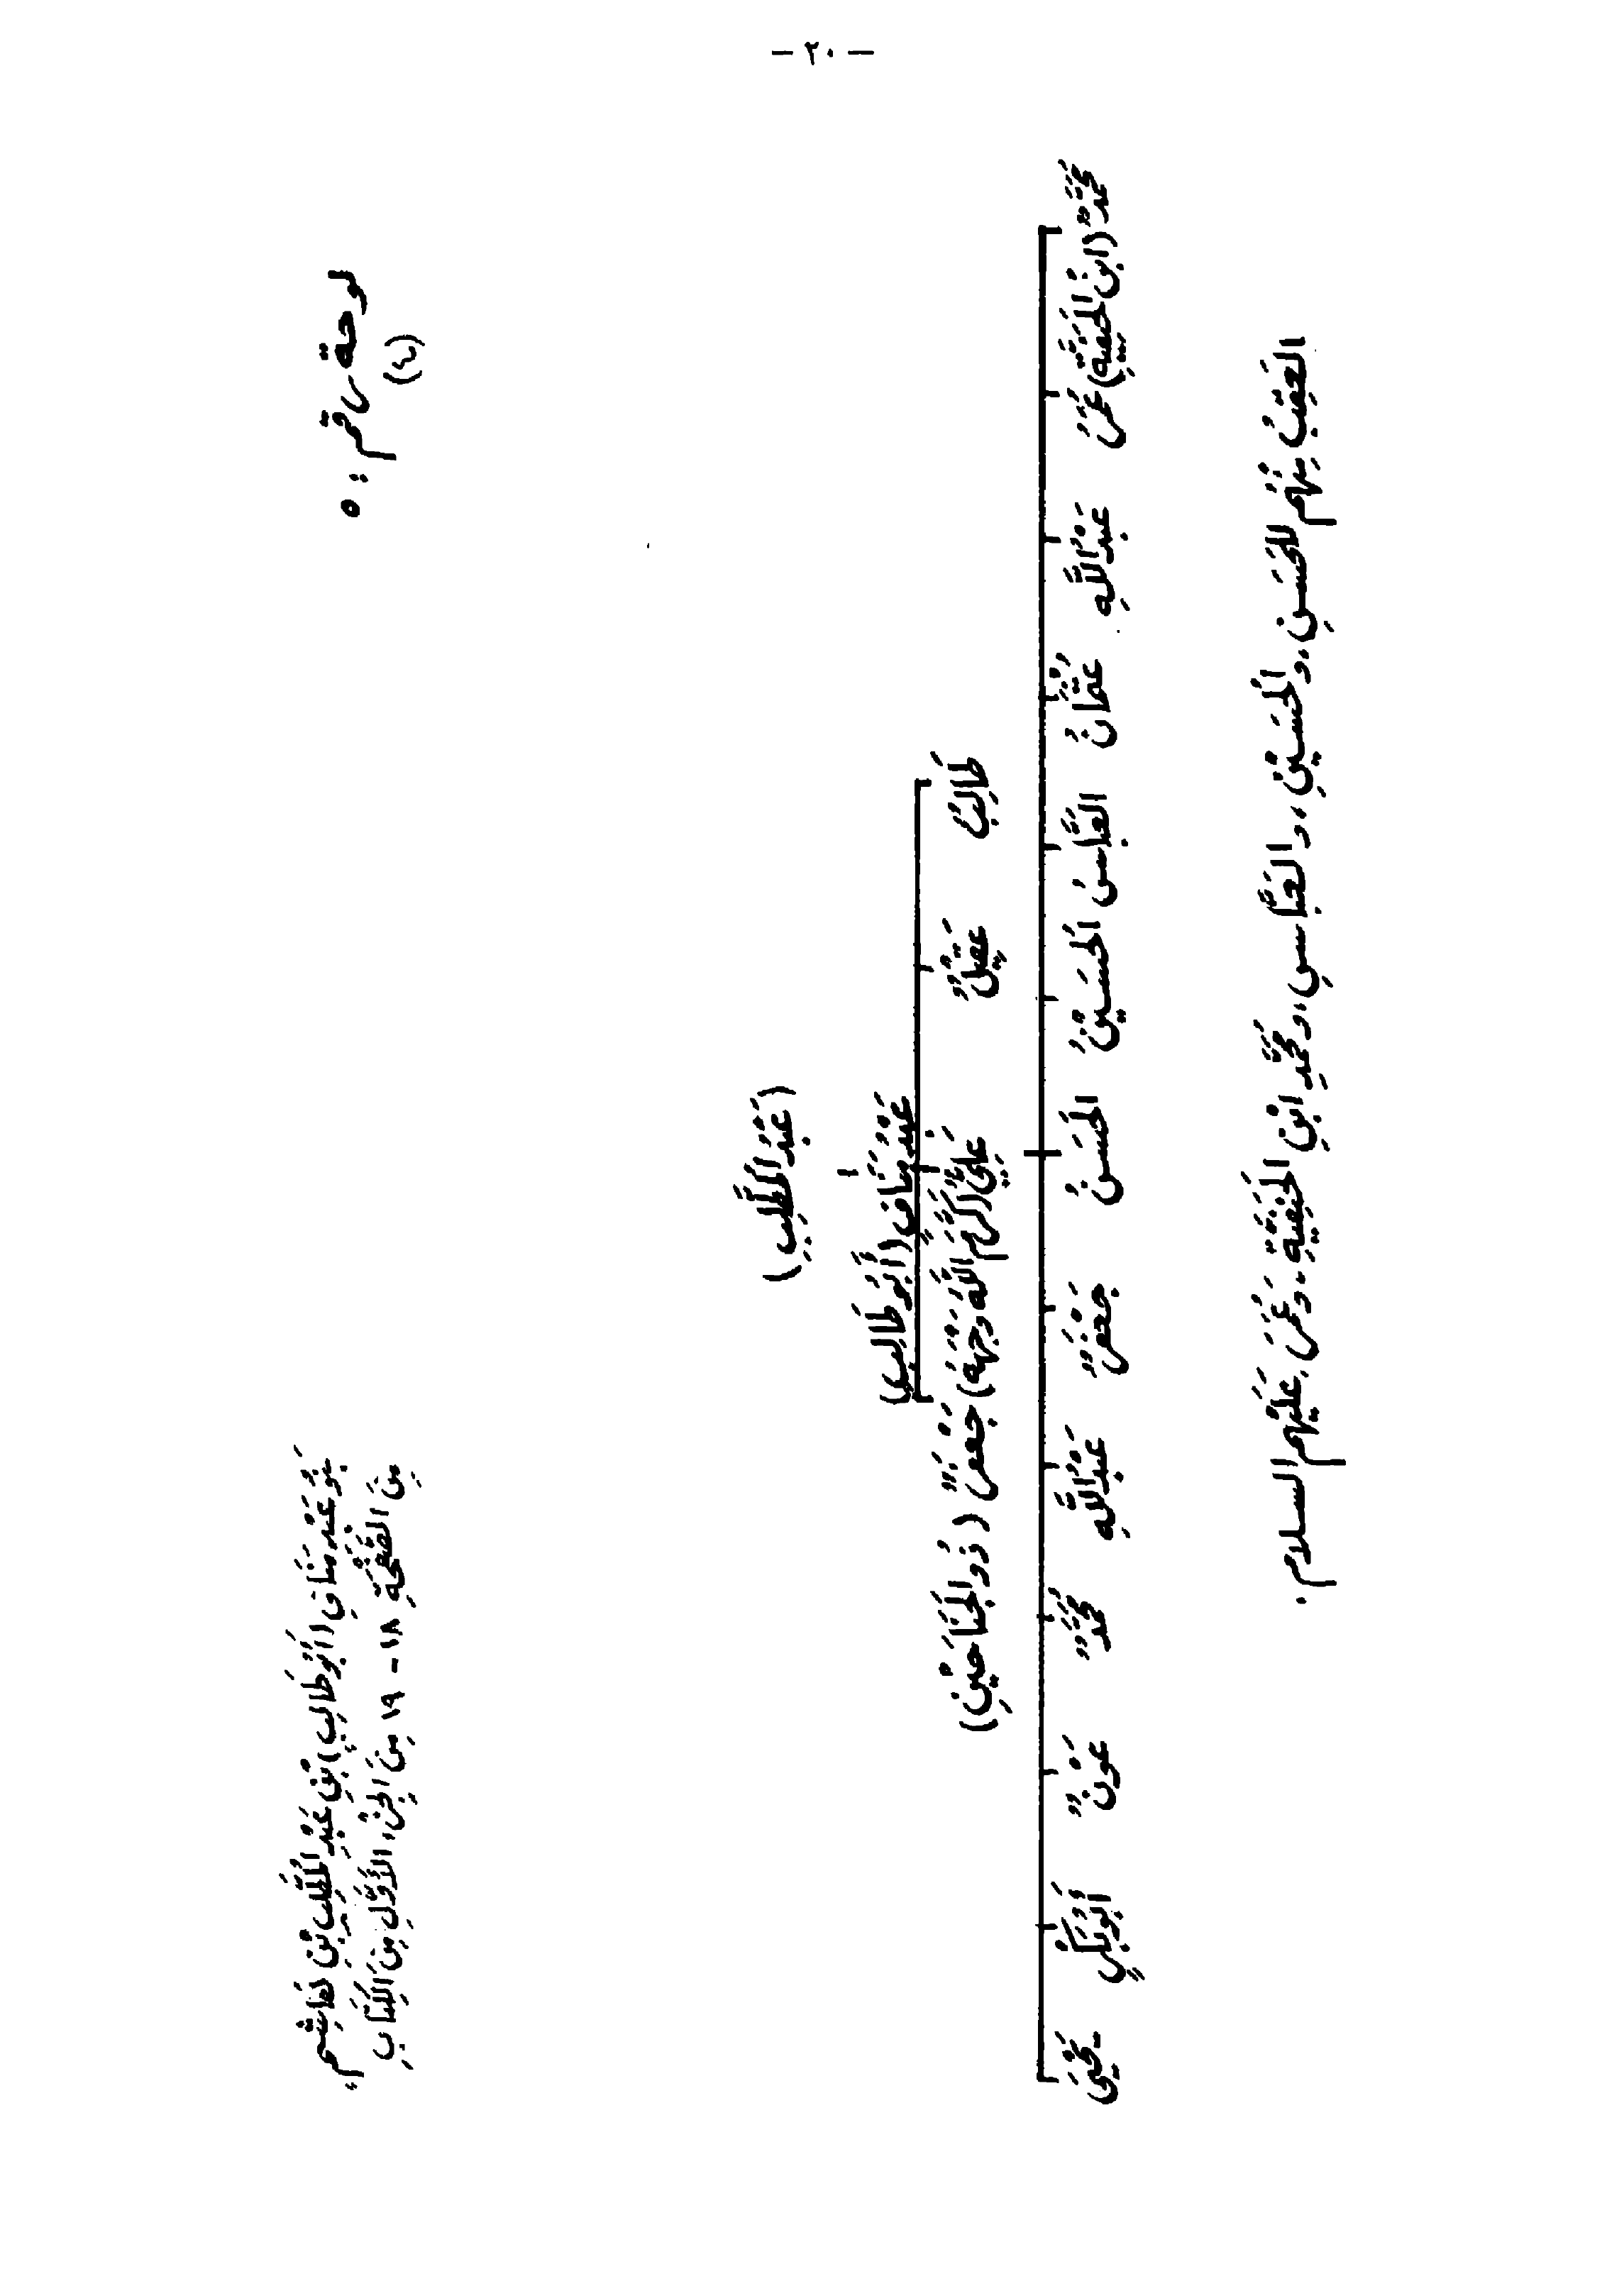 - ٢٠ -
لوحة رقم : ٥
(٤)
بَنُو عَبْدِ مَنَافٍ (أَبُو طَالِبٍ) بْنِ عَبْدِ الْمُطَّلِبِ بْنِ هَاشِمٍ،
مِنَ الصَّفْحَةِ ١٨ - ١٩ مِنَ الْجُزْءِ الأَوَّلِ مِنَ الْكِتَابِ
(عَبْدُ الْمُطَّلِبِ)
عَبْدُ مَنَافٍ (أَبُو طَالِبٍ)
طَالِبٌ عَقِيلٌ عَلِيٌّ (كَرَّمَ اللَّهُ وَجْهَهُ) جَعْفَرٌ (ذُو الْجَنَاحَيْنِ)
مُحَمَّدٌ (ابْنُ الْحَنَفِيَّةِ) عُمَرُ عَبْدُ اللَّهِ عُثْمَانُ الْعَبَّاسُ الْحُسَيْنُ الْحَسَنُ جَعْفَرٌ عَبْدُ اللَّهِ مُحَمَّدٌ عَوْنٌ أَبُو بَكْرٍ يَحْيَى
الْعَقِبُ مِنْهُمْ لِلْحَسَنِ، وَالْحُسَيْنِ، وَالْعَبَّاسِ، وَمُحَمَّدِ ابْنِ الْحَنَفِيَّةِ، وَعُمَرَ، عَلَيْهِم السلام.